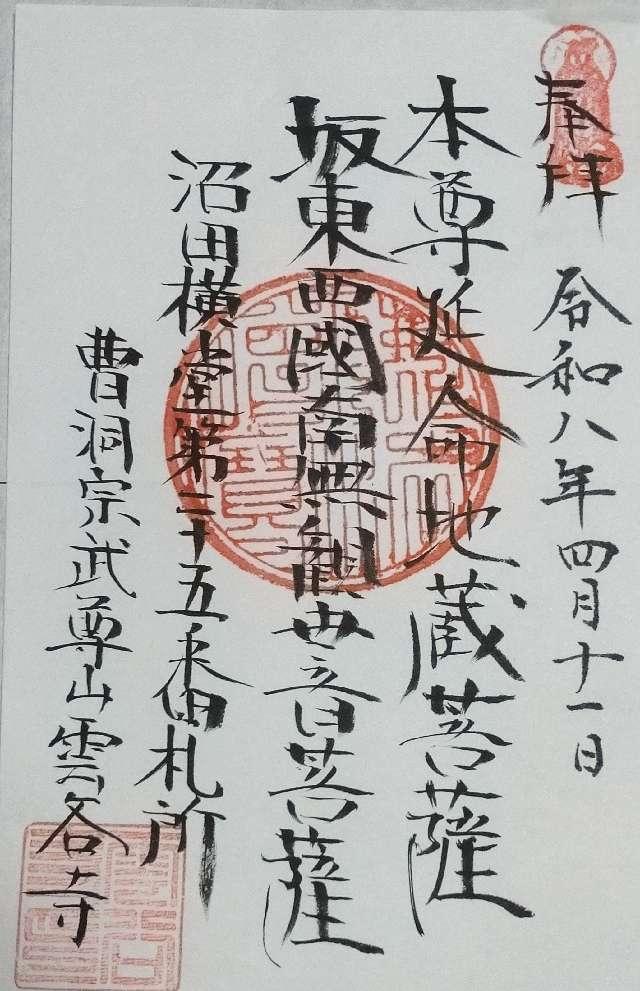 奉拝
令和八年四月十一日
本尊延命地蔵菩薩
坂東西國南無観世音菩薩
沼田横堂第二十五番札所
曹洞宗武尊山雲谷寺